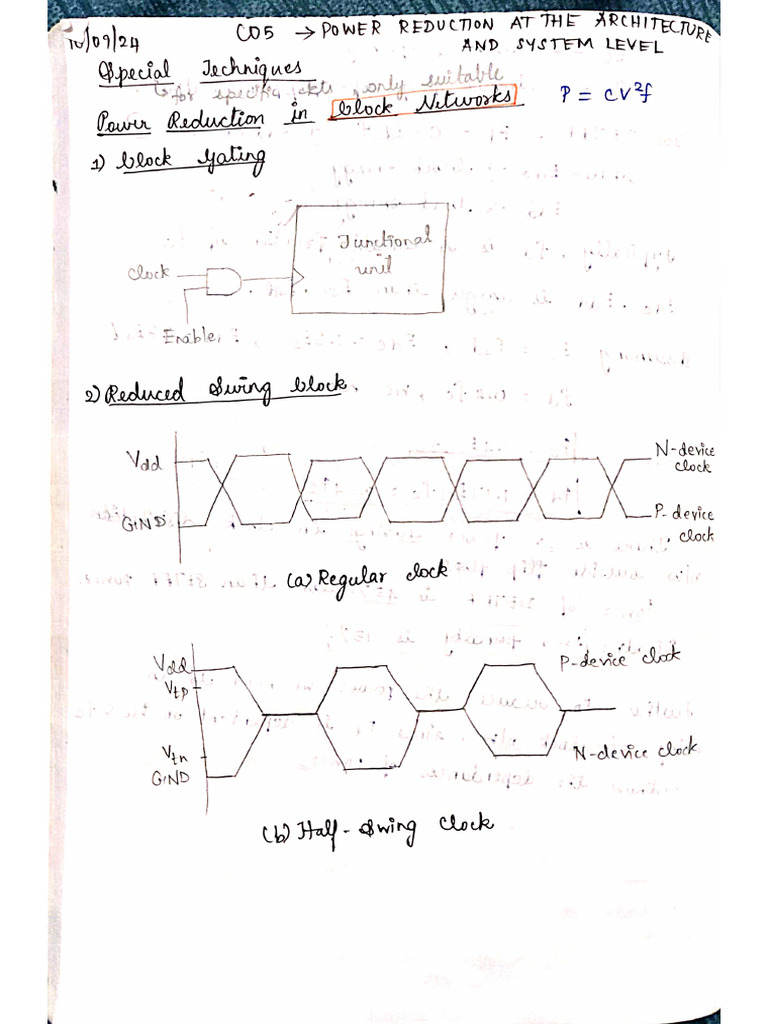 10/09/24
CO5 → POWER REDUCTION AT THE ARCHITECTURE
AND SYSTEM LEVEL
Special Techniques
↳ for specific ckts, only suitable
Power Reduction in Clock Networks
P = CV²f
1) Clock Gating
Functional
unit
Clock
Enable
2) Reduced Swing Clock.
Vdd
GND
N-device
clock
P-device
clock
(a) Regular clock
Vdd
Vtp
Vtn
GND
P-device clock
N-device clock
(b) Half-Swing Clock